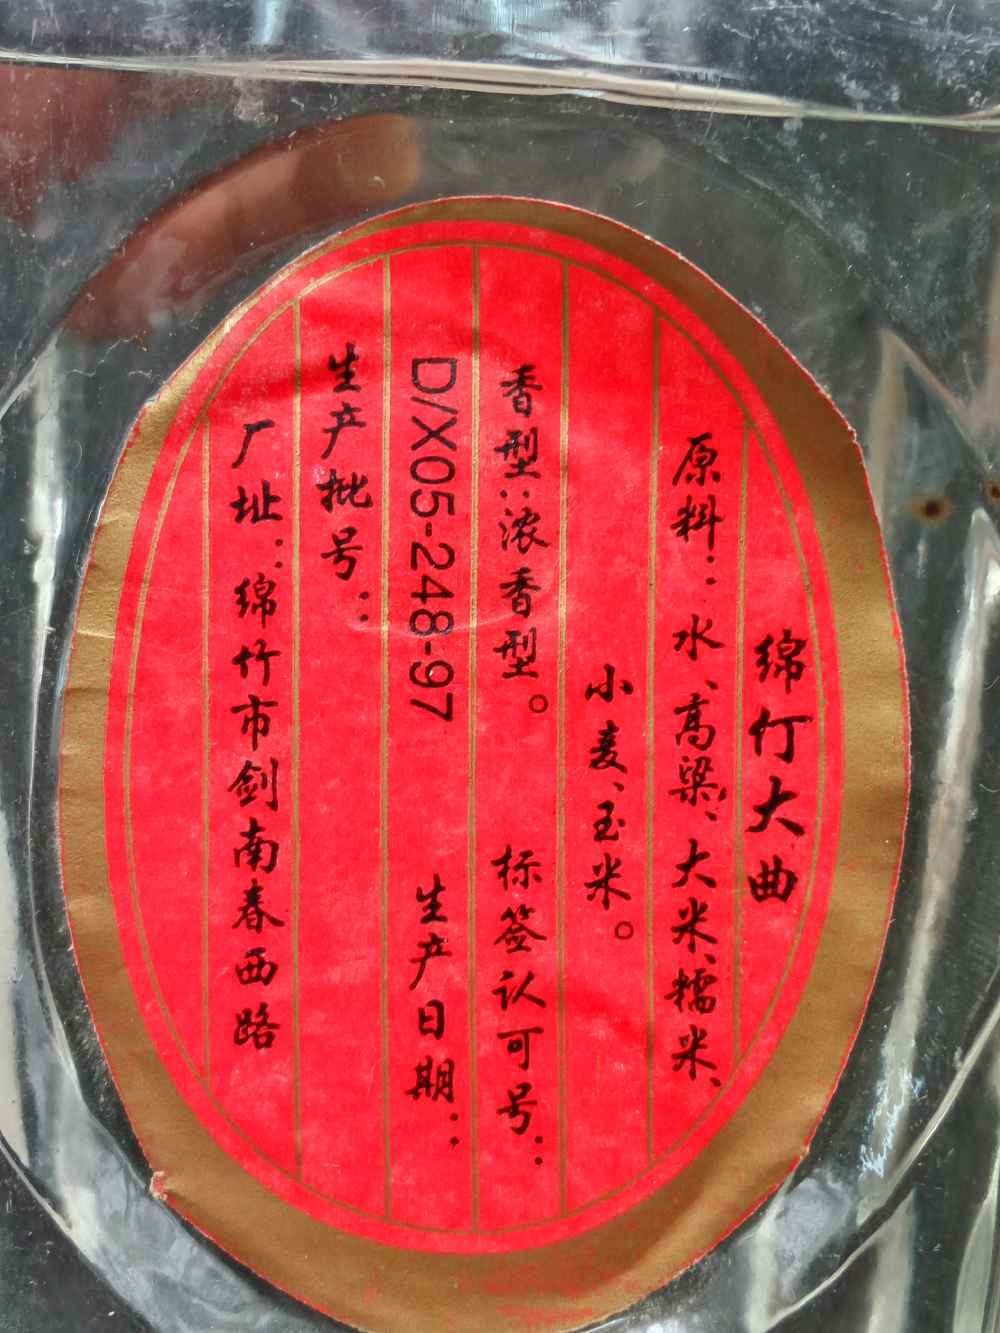 绵竹大曲
原料：水、高粱、大米、糯米、
小麦、玉米。
香型：浓香型。 标签认可号：
D/X05-248-97 生产日期：
生产批号：
厂址：绵竹市剑南春西路